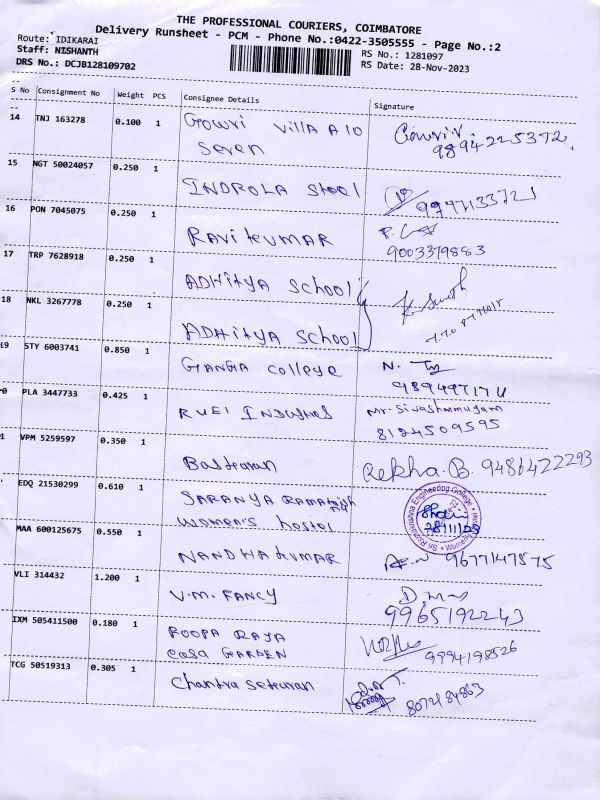 THE PROFESSIONAL COURIERS, COIMBATORE
Delivery Runsheet - PCM - Phone No.:0422-3505555 - Page No.:2
Route: IDIKARAI
Staff: NISHANTH
DRS No.: DCJB128109702
RS No.: 1281097
RS Date: 28-Nov-2023
S No Consignment No Weight PCS Consignee Details Signature
14 TNJ 163278 0.100 1 Gowri Villa A 10
Seven
Gowri.v.
9894225372
15 NGT 50024057 0.250 1 INDROLA Steel
16 PON 7045075 0.250 1 RaviKUMAR
9003379883
17 TRP 7628918 0.250 1 ADHITYA School
18 NKL 3267778 0.250 1 ADHITYA School
19 STY 6003741 0.850 1 GANGA College
N.
0 PLA 3447733 0.425 1
Mr. Sivashanmugam
8124509595
1 VPM 5259597 0.350 1 Baskaran Rekha.B. 9486422293
EDQ 21530299 0.610 1 SARANYA
Women's hostel
Sri Ramakrishna Engineering College
28/11/23
MAA 600125675 0.550 1 NANDHAKUMAR 9677147575
VLI 314432 1.200 1 V.M. FANCY
9965192243
IXM 505411500 0.180 1 ROOPA RAJA
Casa GARDEN
9994198526
TCG 50519313 0.305 1 Chandra Sekaran
8072484863